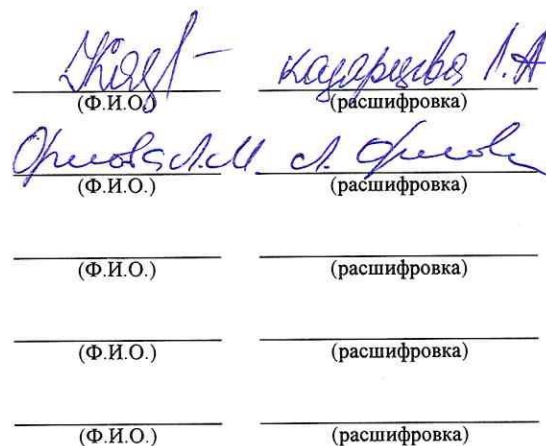 Казарцева Л.А
(Ф.И.О.) (расшифровка)
Орлова Л.М. Л. Орлова
(Ф.И.О.) (расшифровка)
(Ф.И.О.) (расшифровка)
(Ф.И.О.) (расшифровка)
(Ф.И.О.) (расшифровка)